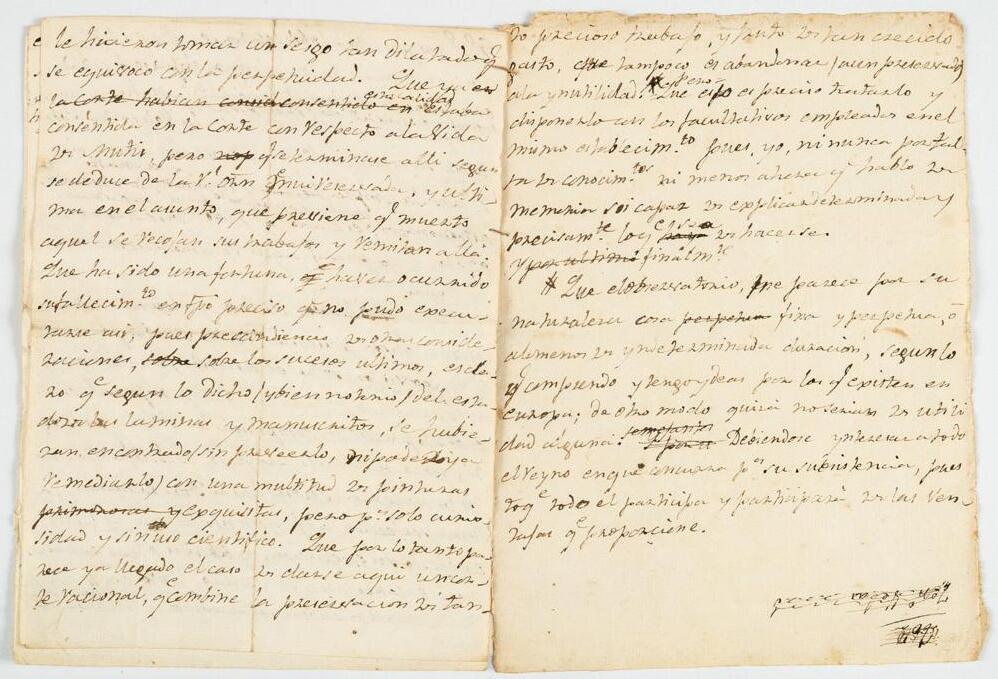 le hicieron tomar un sesgo tan dilatado q.e
se equivocó con la perpetuidad. Que ya en
la Corte habian consid consentido en estaba
consentida en la Corte con respecto a la vida
de Mutis, pero q.e se terminase alli segun
se deduce de la R.l Orn reservada, y ulti-
ma en el asunto, que previene q.e muerto
aquel se recojan sus trabajos y remitan allá.
Que ha sido una fortuna, q.e haver ocurrido
su fallecim.to en tpo preciso q.e no pudo execu-
tarse asi, pues prescindiendo de otras conside-
raciones, sobre sobre los sucesos ultimos, es cla-
ro q.e segun lo dicho (y bien notorio) del esta-
do de las laminas y manuscritos, se hubie-
ran encontrado (sin preveerlo, ni poder ya
remediarlo) con una multitud de pinturas
primorosas y exquisitas, pero p.a solo curio-
sidad y sin uso cientifico. Que por lo tanto pa-
rece ya llegado el caso de darse aqui un cor-
te racional, q.e combine la preservacion de tan-
to precioso trabajo, y fruto de tan crecido
gasto, que tampoco es abandonar (aun preservada)
a la ynutilidad. Pero Que esto es preciso tratarlo y
disponerlo con los facultativos empleados en el
mismo establecim.to pues, yo, ni nunca por fal-
ta de conocim.tos ni menos ahora q.e hablo de
memoria soi capaz de explicar determinada y
precisam.te lo q.e haya de hacerse.
Y por ultimo finalm.te
Que el observatorio, me parece por su
naturaleza cosa perpetua fixa y perpetua, ó
al menos de yndeterminada duracion, segun lo
q.e comprendo y tengo ydeas por los q.e existen en
europa; de otro modo quizá no serian de utili
dad alguna. semejantes Debiendose ynteresar a todo
el Reyno en que concurra p.a su subsistencia, pues
todo el participa y participará de las ven-
tajas q.e proporcione.